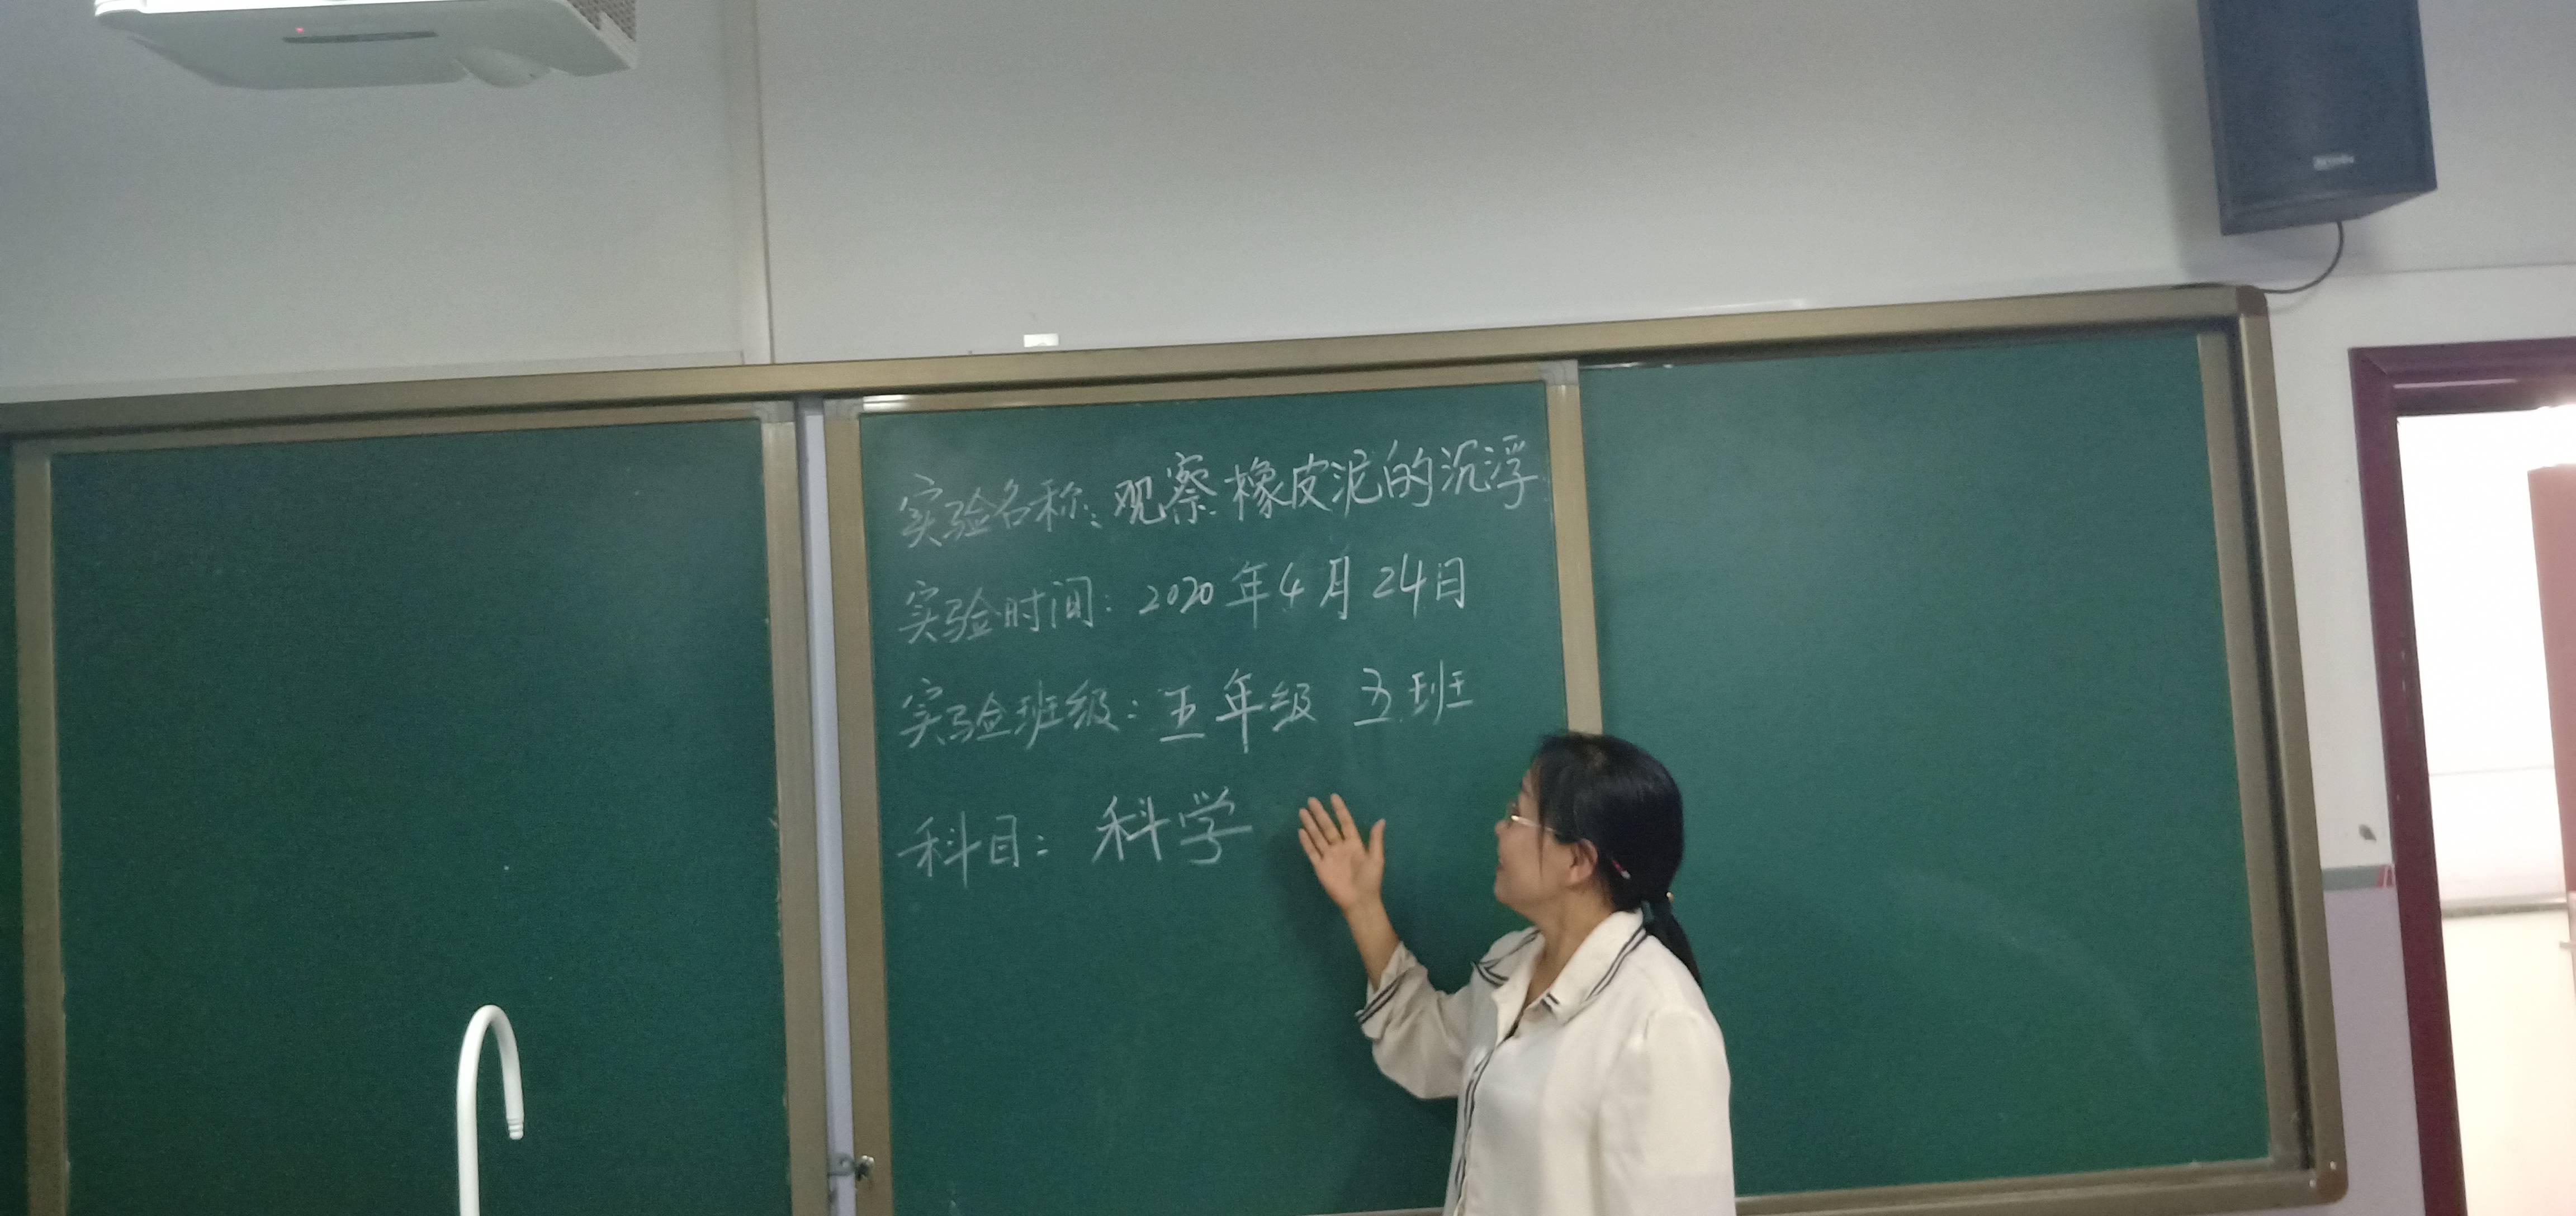 实验名称:观察橡皮泥的沉浮
实验时间:2020年4月24日
实验班级:五年级 五班
科目:科学